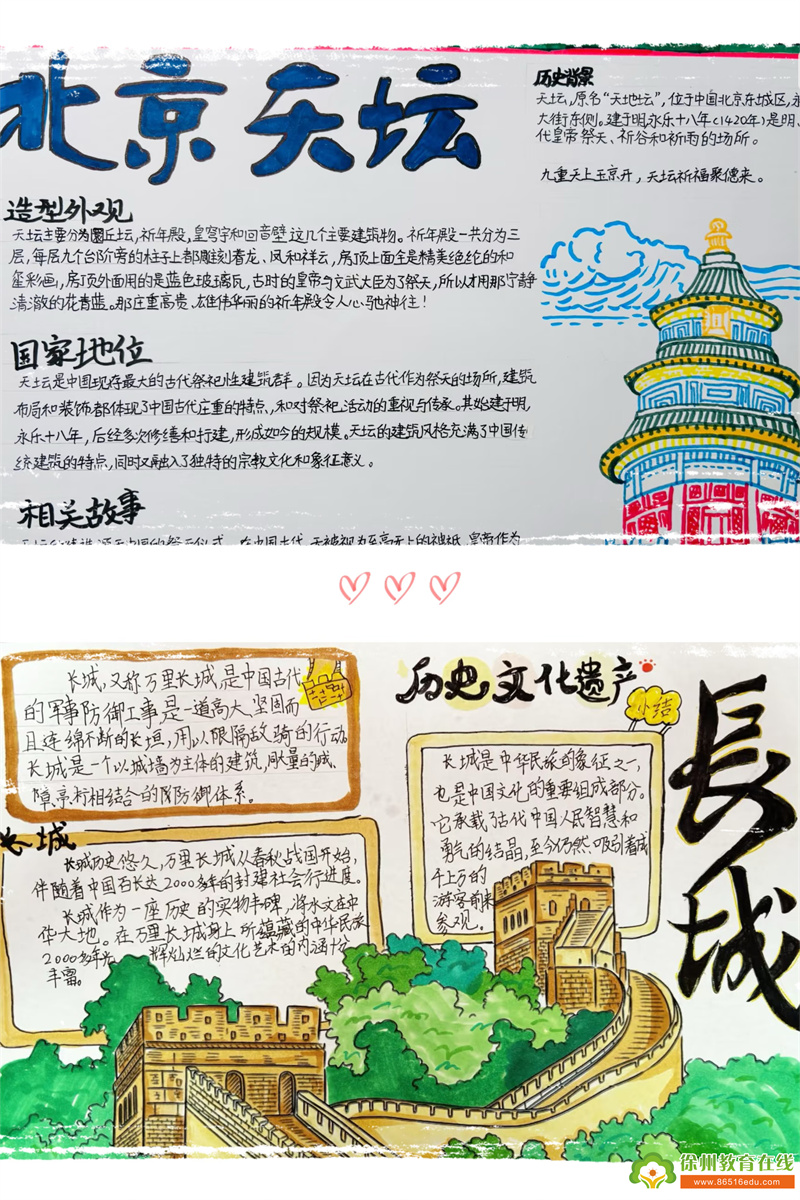 北京天坛
历史背景
天坛,原名“天地坛”,位于中国北京东城区,永
大街东侧。建于明永乐十八年(1420年)是明、
代皇帝祭天、祈谷和祈雨的场所。
九重天上玉京开,天坛祈福聚德来。
造型外观
天坛主要分为圜丘坛,祈年殿,皇穹宇和回音壁这几个主要建筑物。祈年殿一共分为三
层,每层九个台阶旁的柱子上都雕刻着龙、凤和祥云,房顶上面全是精美绝纶的和
玺彩画,房顶外面用的是蓝色玻璃瓦,古时的皇帝与文武大臣为了祭天,所以才用那宁静
清澈的花青蓝。那庄重高贵、雄伟华丽的祈年殿令人心驰神往!
国家地位
天坛是中国现存最大的古代祭祀性建筑群。因为天坛在古代作为祭天的场所,建筑
布局和装饰都体现了中国古代庄重的特点,和对祭祀活动的重视与传家。其始建于明
永乐十八年,后经多次修缮和打建,形成如今的规模。天坛的建筑风格充满了中国传
统建筑的特点,同时又融入了独特的宗教文化和象征意义。
相关故事
在中国古代,天被视为至高无上的神祇,皇帝作为
历史文化遗产
长城
长城,又称万里长城,是中国古代
的军事防御工事是一道高大、坚固而
且连绵不断的长垣,用以限隔敌骑的行动。
长城是一个以城墙为主体的建筑,同大量的城、
障、亭、标相结合的防御体系。
小结
长城是中华民族的象征之一,
也是中国文化的重要组成部分。
它承载了古代中国人民智慧和
勇气的结晶,至今仍然吸引着成
千上万的
游客前来
参观。
长城
长城历史悠久,万里长城从春秋战国开始,
伴随着中国百长达2000多年的封建社会行进度。
长城作为一座历史的实物丰碑,将水文在中
华大地。在万里长城身上所蕴藏的中华民族
2000多年光辉灿烂的文化艺术的内涵十分
丰富。
徐州教育在线
www.86516edu.com